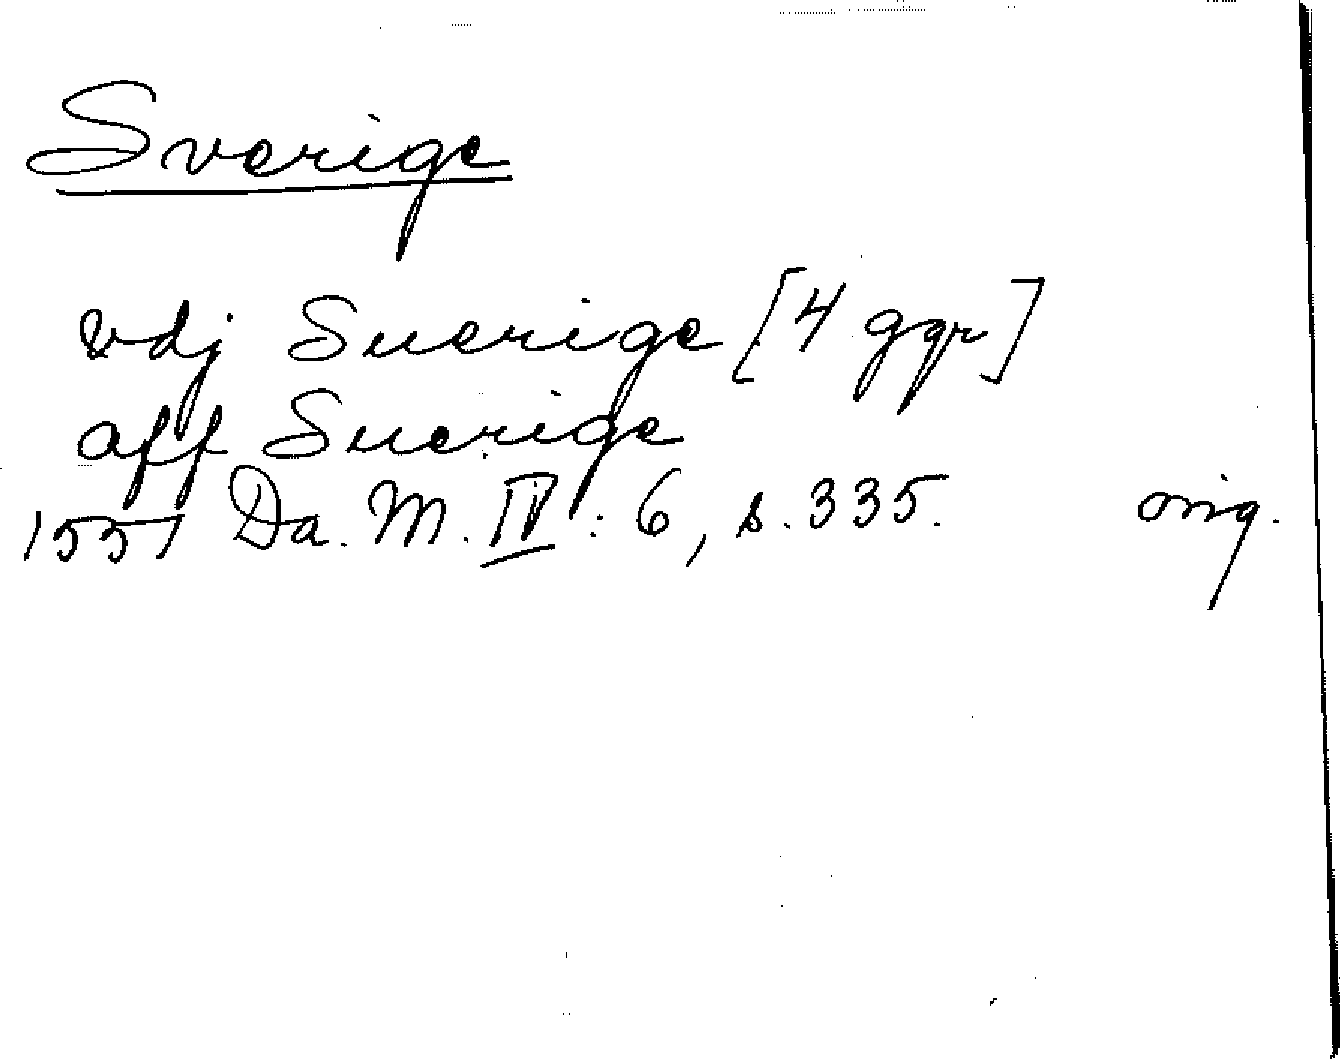 Sverige
vdj Suerige [4 ggr]
aff Suerige
1557 Da. M. IV: 6, s. 335. orig.